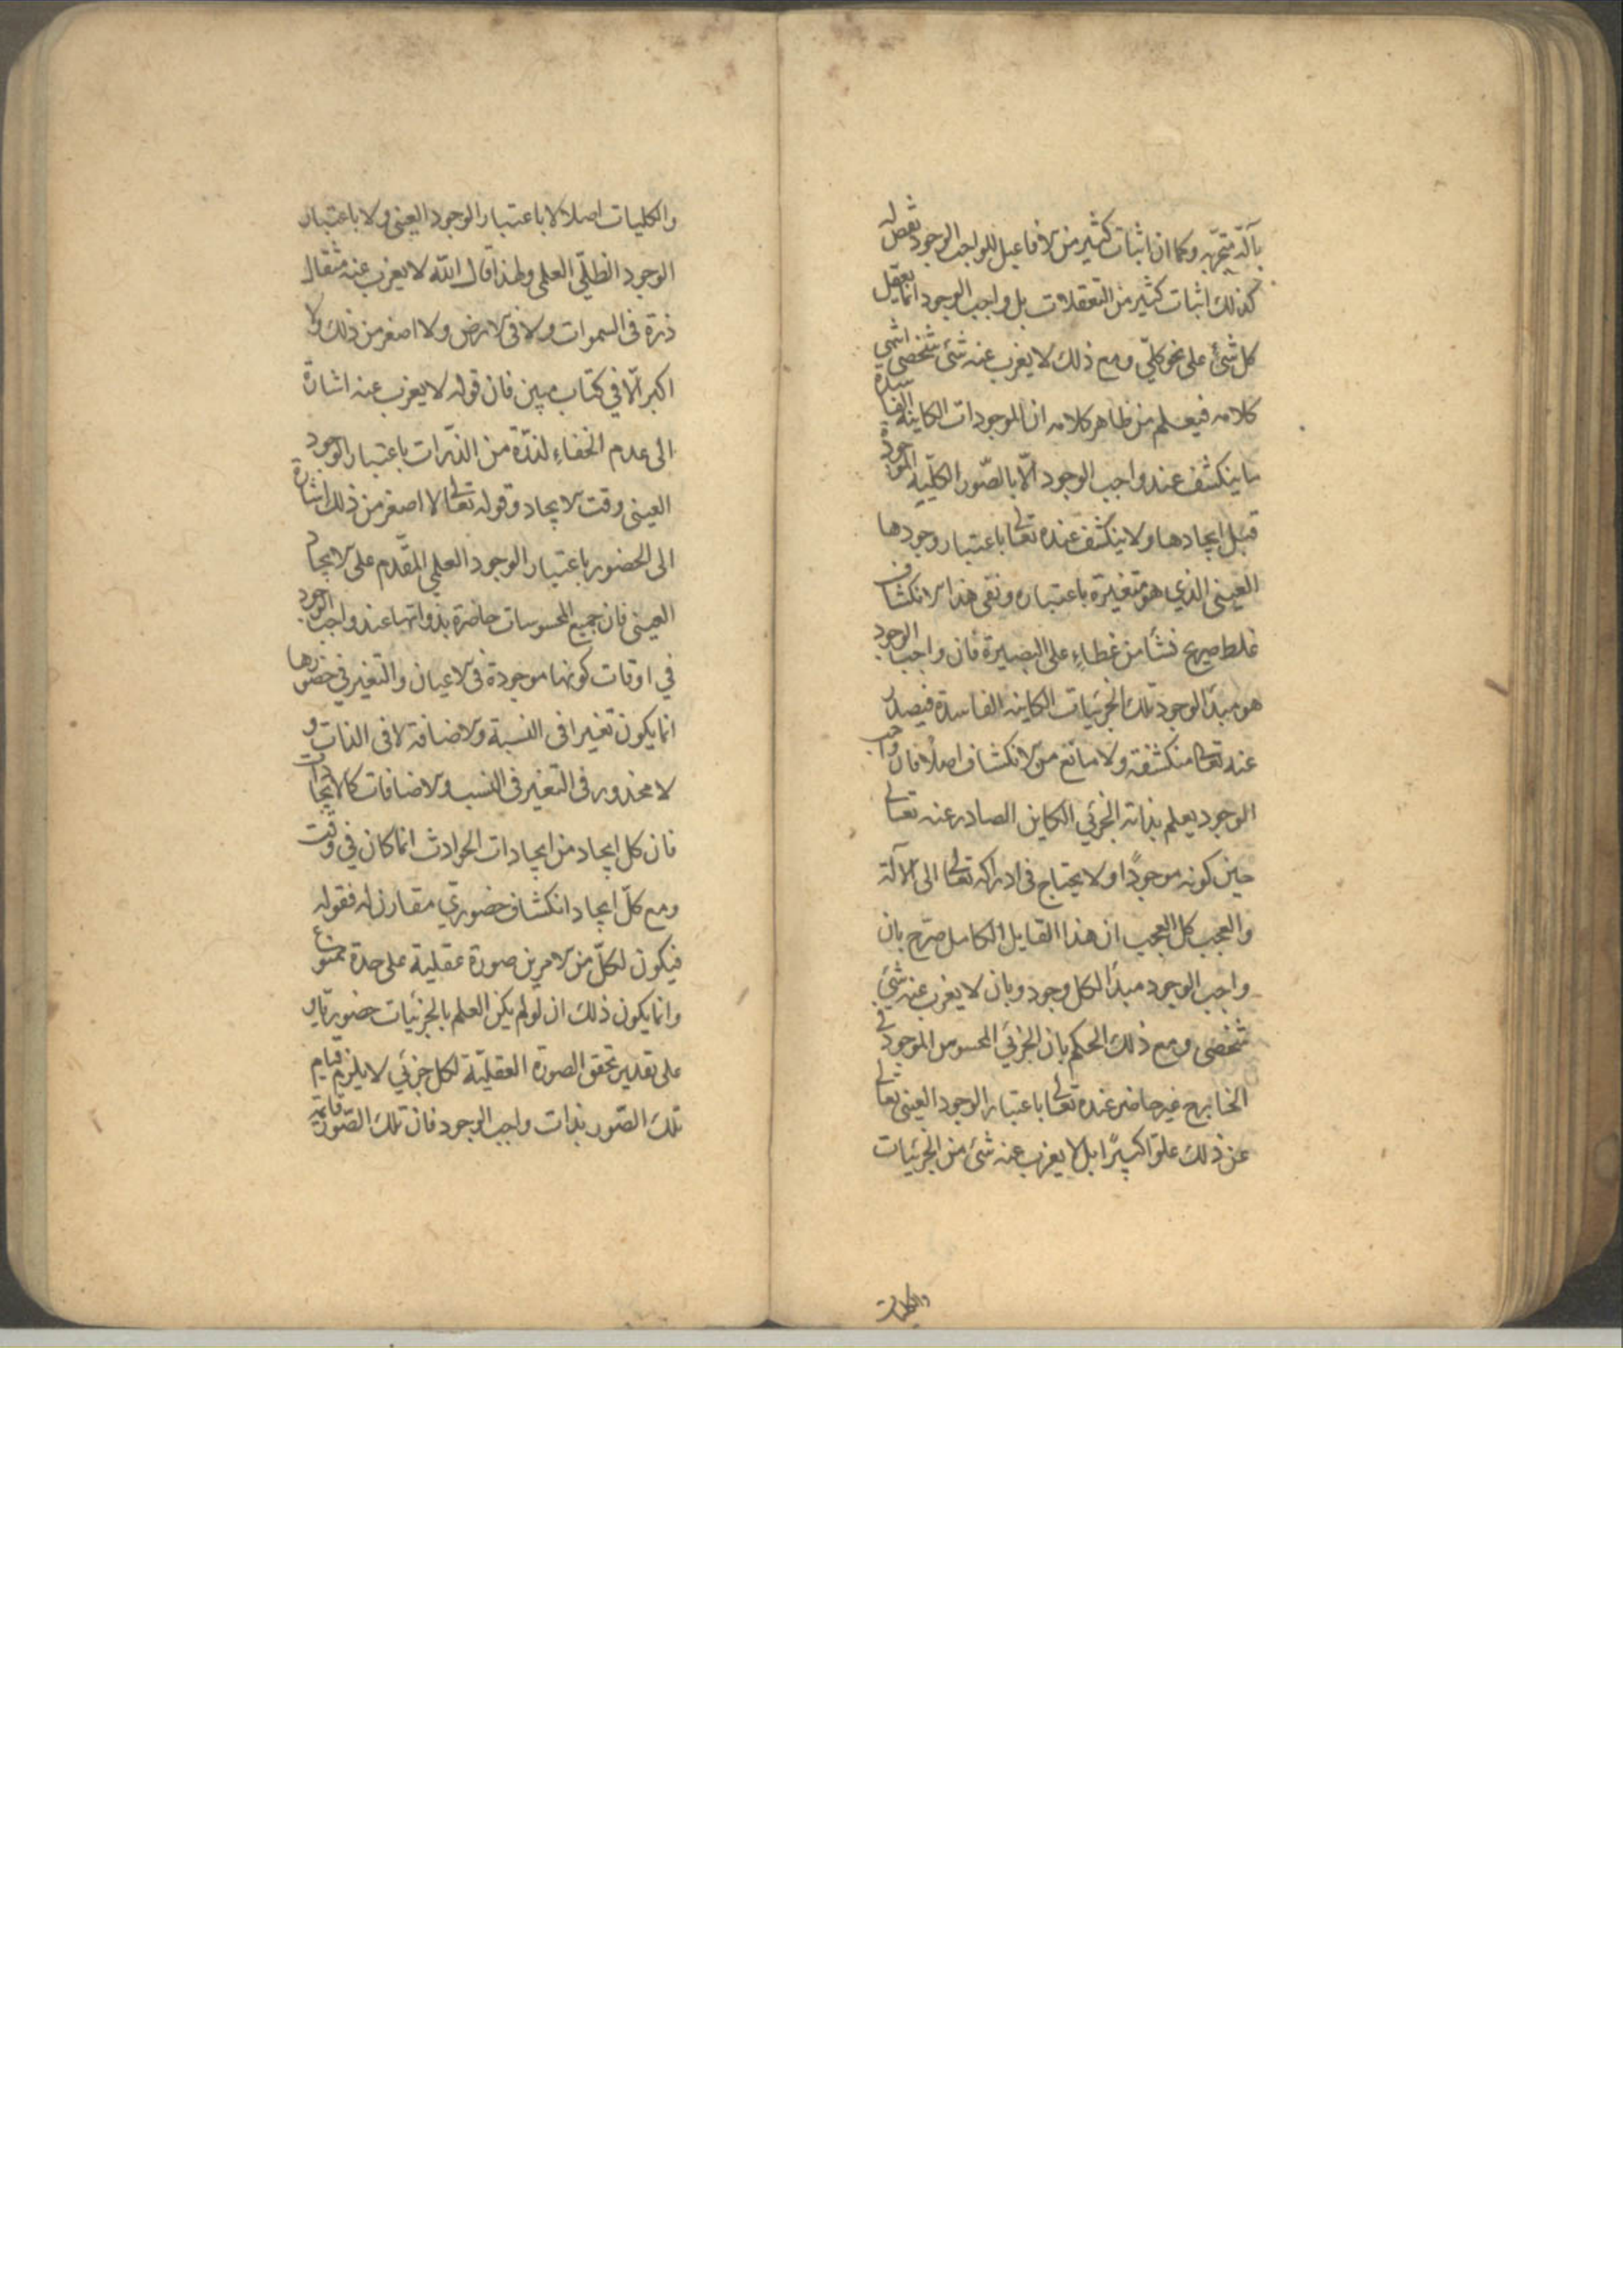 بآلة متجزية وكما ان اثبات كثير من الافاعيل للواجب الوجود نقص له
كذلك اثبات كثير من التعقلات بل واجب الوجود انما يعقل
كل شئ على نحو كلّي ومع ذلك لا يغرب عنه شئ شخصي انتهى
كلامه فيعلم من ظاهر كلامه ان الموجودات الكاينة الفاسدة
ما ينكشف عند واجب الوجود الّا بالصّور الكلّية الموجودة
قبل ايجادها ولا ينكشف عنده تعالى باعتبار وجودها
العيني الذي هو متغيرة باعتباره ونفى هذا الانكشاف
غلط صريح نشأ من غطاءٍ على البصيرة فان واجب الوجود
هو مبدأ لوجود تلك الجزئيات الكاينة الفاسدة فيصدر
عنه تعالى منكشفة ولا مانع من الانكشاف اصلًا فان واجب
الوجود يعلم بذاته الجزئي الكاين الصادر عنه تعالى
حين كونه موجودًا ولا يحتاج في ادراكه تعالى الى الآلة
والعجب كل العجب ان هذا القايل الكامل صرّح بان
واجب الوجود مبدأ لكل وجود وبان لا يغرب عنه شئ
شخصي ومع ذلك الحكم بان الجزئي المحسوس الموجود في
الخارج غير حاضر عنده تعالى باعتبار الوجود العيني تعالى
عن ذلك علوّا كبيرًا بل لا يغرب عنه شئ من الجزئيات
والكليات
والكليات اصلا لا باعتبار الوجود العيني ولا باعتبار
الوجود الظلّي العلمي ولهذا قال اللّه لا يعزب عنه مثقال
ذرة في السموات ولا في الارض ولا اصغر من ذلك ولا
اكبر الّا في كتاب مبين فان قوله لا يعزب عنه اشارة
الى عدم الخفاءِ لذرّة من الذرّات باعتبار الوجود
العيني وقت الايجاد وقوله تعالى لا اصغر من ذلك اشارة
الى الحضور باعتبار الوجود العلمي المقدّم على الايجاد
العيني فان جميع المحسوسات حاضرة بذواتها عند واجب الوجود
في اوقات كونها موجودة في الاعيان والتغير في حضورها
انما يكون تغيرا في النسبة والاضافة لا في الذات و
لا محذور في التغير في النسب والاضافات كالايجادات
فان كل ايجاد من ايجادات الحوادث انما كان في وقت
ومع كلّ ايجاد انكشاف حضوري مقارن له فقوله
فيكون لكلّ من الامرين صورة عقلية على حدة ممنوع
وانما يكون ذلك ان لو لم يكن العلم بالجزئيات حضوريا و
على تقدير تحقق الصورة العقليّة لكل جزئي لا يلزم قيام
تلك الصّور بذات واجب الوجود فان تلك الصّور قايمة